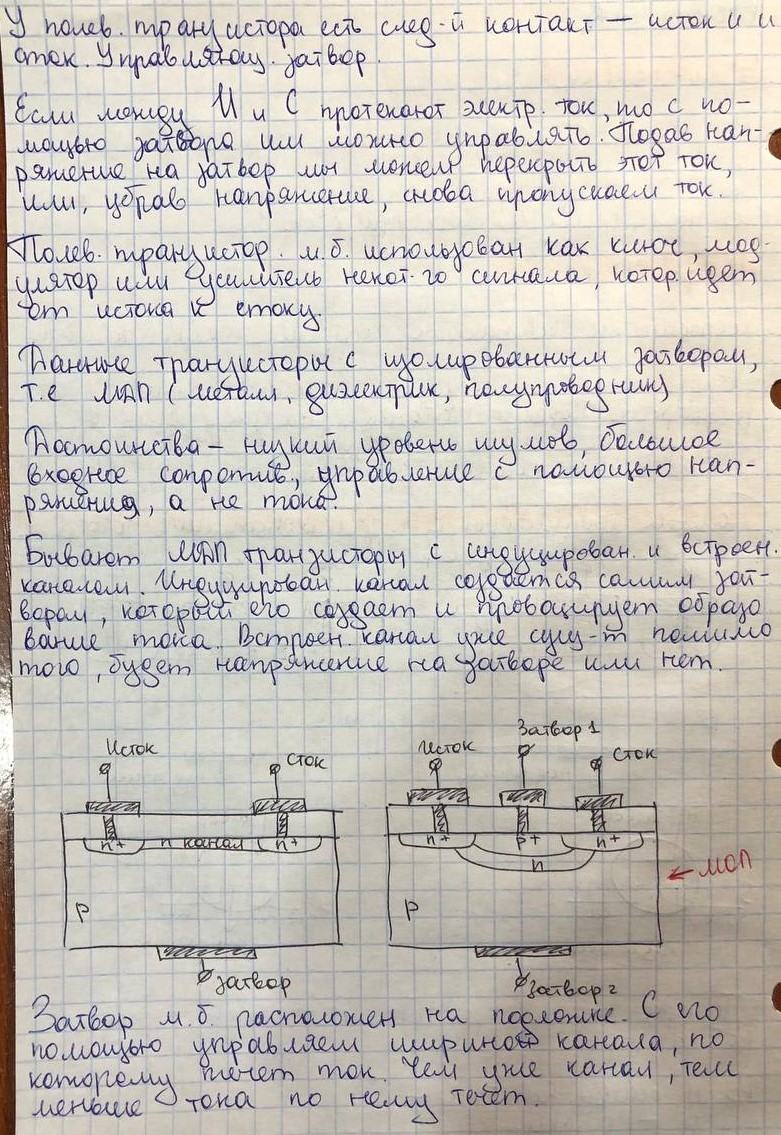 У полев. транзистора есть след-й контакт – исток и и
сток. Управляющ. затвор.
Если между И и С протекают электр. ток, то с по-
мощью затвора им можно управлять. Подав нап-
ряжение на затвор мы можем перекрыть этот ток,
или, убрав напряжение, снова пропускаем ток.
Полев. транзистор. м.б. использован как ключ, мод-
улятор или усилитель некот-го сигнала, котор. идет
от истока к стоку.
Данные транзисторы с изолированным затвором,
т.е МДП (металл, диэлектрик, полупроводник)
Достоинства – низкий уровень шумов, большое
входное сопротив., управление с помощью нап-
ряжения, а не тока.
Бывают МДП транзисторы с индуцирован. и встроен.
каналом. Индуцирован. канал создается самим зат-
вором, который его создает и провоцирует образо
вание тока. Встроен. канал уже сущ-т помимо
того, будет напряжение на затворе или нет.
Исток сток
n+ n канал n+
p
затвор
Исток Затвор 1 сток
n+ p+ n+
n
p
Затвор 2
← МОП
Затвор м.б. расположен на подложке. С его
помощью управляем шириной канала, по
которому течет ток. Чем уже канал, тем
меньше тока по нему течет.